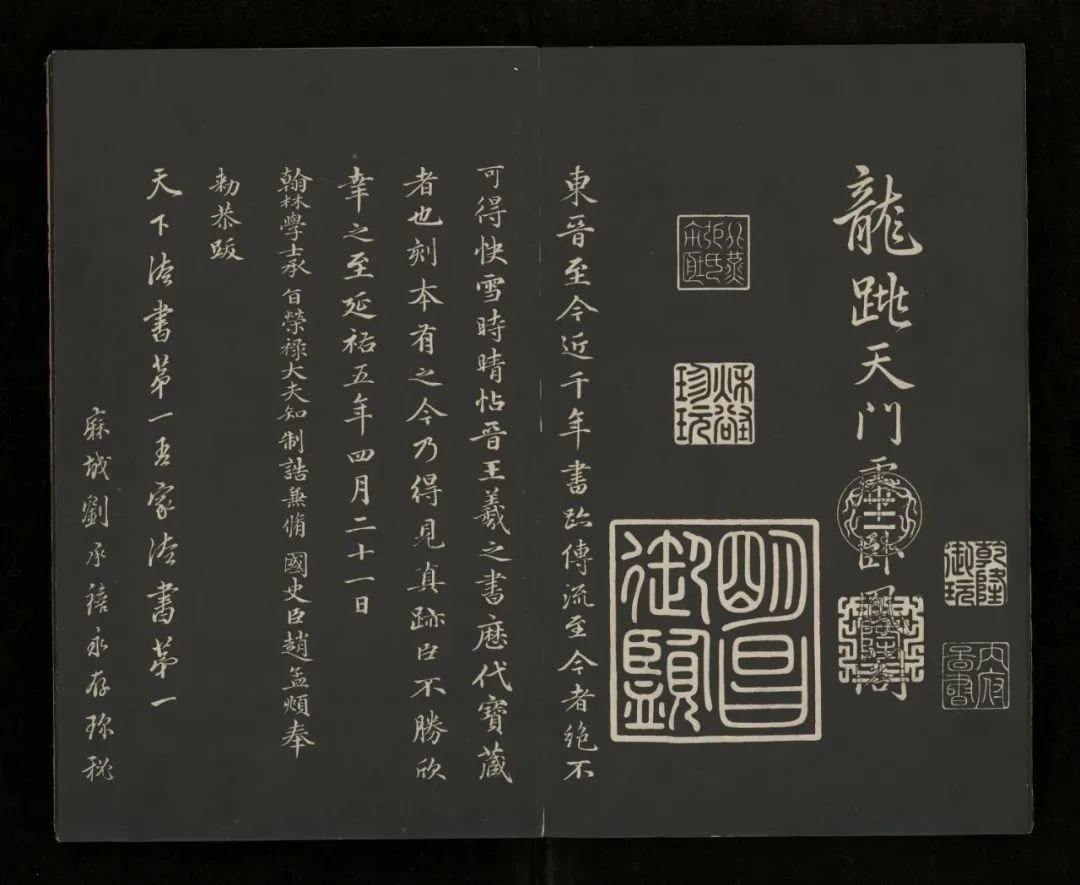 乾隆御玩
龍跳天門虎臥鳳閣
秋壑珍玩
明昌御覽
東晉至今近千年書跡傳流至今者絶不
可得快雪時晴帖晉王羲之書歷代寶藏
者也刻本有之今乃得見真跡臣不勝欣
幸之至延祐五年四月二十一日
翰林學士承旨榮祿大夫知制誥兼脩國史臣趙孟頫奉
勑恭跋
天下法書第一吾家法書第一
麻城劉承禧永存珎秘